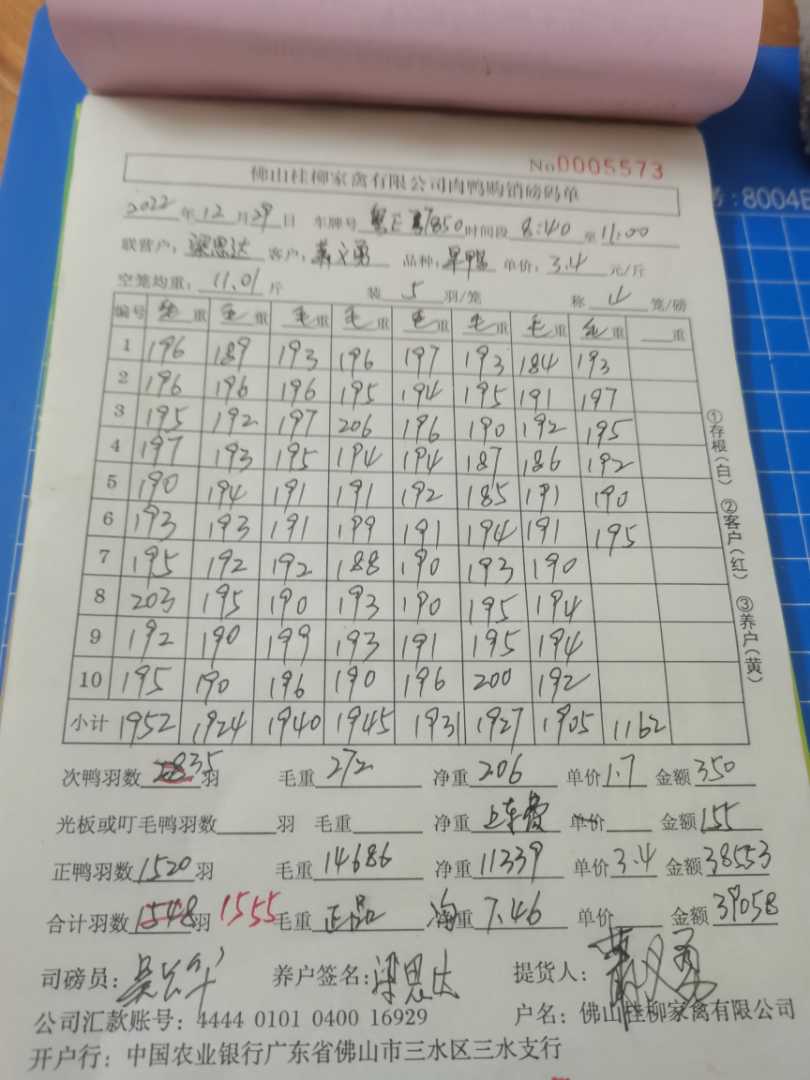 No0005573
佛山桂柳家禽有限公司肉鸭购销磅码单
:8004B
2022年12月29日 车牌号 7850 时间段 8:40 至 11:00
联营户: 梁思达 客户: 勇 品种: 单价: 3.4 元/斤
空笼均重: 11.01 斤 装 5 羽/笼 称 4 笼/磅
编号 毛重 毛重 毛重 毛重 毛重 毛重 毛重 毛重 重
1 196 189 193 196 197 193 184 193
2 196 196 196 195 194 195 191 197
3 195 192 197 206 196 190 192 195
4 197 193 195 194 194 187 186 192
5 190 194 191 191 192 185 191 190
6 193 193 191 199 191 94 191 195
7 195 192 192 188 190 193 190
8 203 195 190 193 190 195 194
9 192 190 199 193 191 195 194
10 195 190 196 190 196 200 192
小计 1952 1924 1940 1945 1931 1927 1905 1162
①存根(白) ②客户(红) ③养户(黄)
次鸭羽数 35 羽 毛重 272 净重 206 单价 1.7 金额 350
光板或叮毛鸭羽数 羽 毛重 净重 上车费 单价 金额 155
正鸭羽数 1520 羽 毛重 14686 净重 11339 单价 3.4 金额 38553
合计羽数 1548 羽 1555 毛重 正品 净重 7.46 单价 金额 39058
司磅员: 养户签名: 梁思达 提货人:
公司汇款账号: 4444 0101 0400 16929 户名: 佛山桂柳家禽有限公司
开户行: 中国农业银行广东省佛山市三水区三水支行